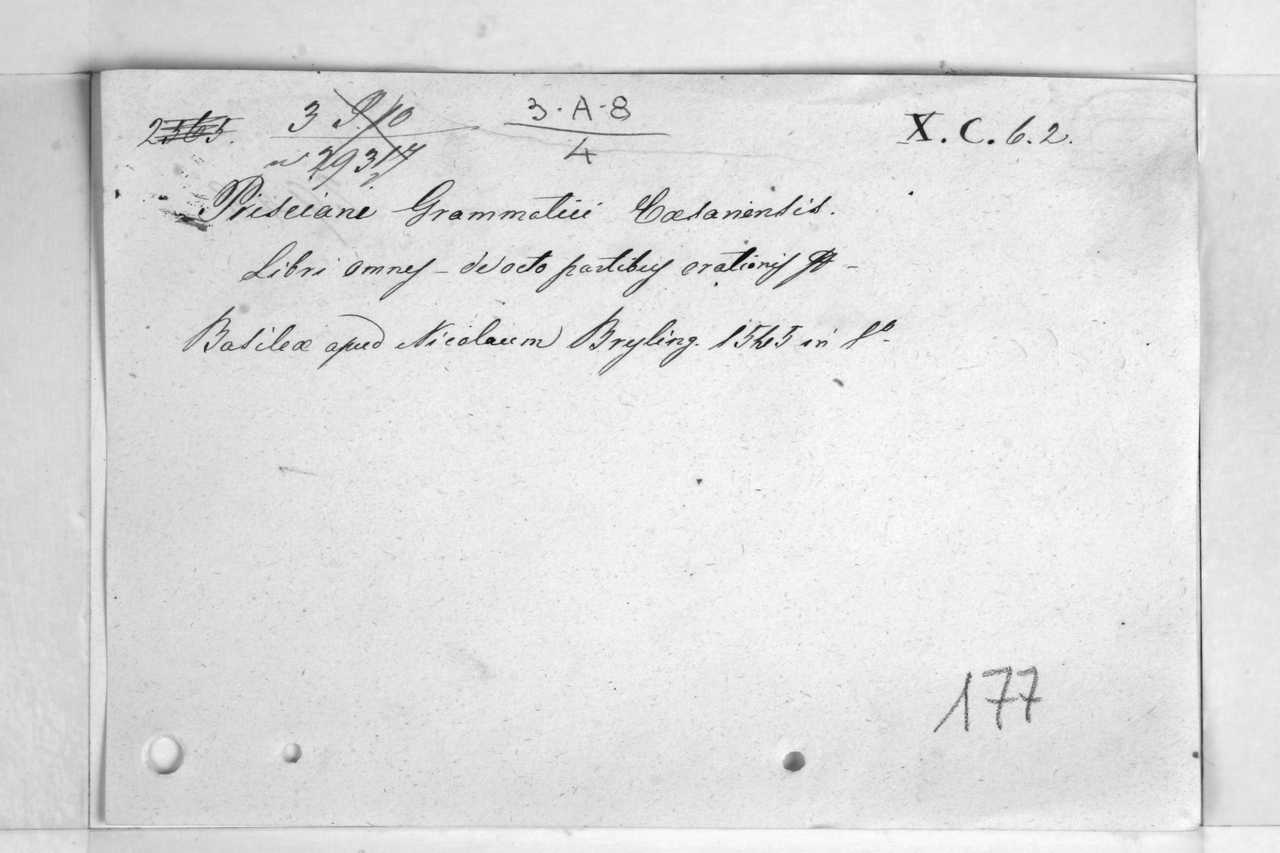 2565. 3 P. 10 3-A-8 X. C. 6. 2.
29317 4
Prisciani Grammatici Cæsariensis.
Libri omnes - de octo partibus orationis -
Basileæ apud Nicolaum Bryling. 1545 in 8º-
177